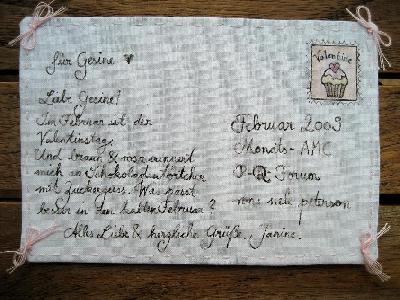 für Gesine ♥
Valentine
Liebe Gesine!
Im Februar ist der
Valentinstag.
Und braun & rosa erinnert
mich an Schokoladentörtchen
mit Zuckerguss. Was passt
besser in den kalten Februar?
Alles Liebe & herzliche Grüße, Janine.
Februar 2009
Monats-AMC
P-R Forum
peterson